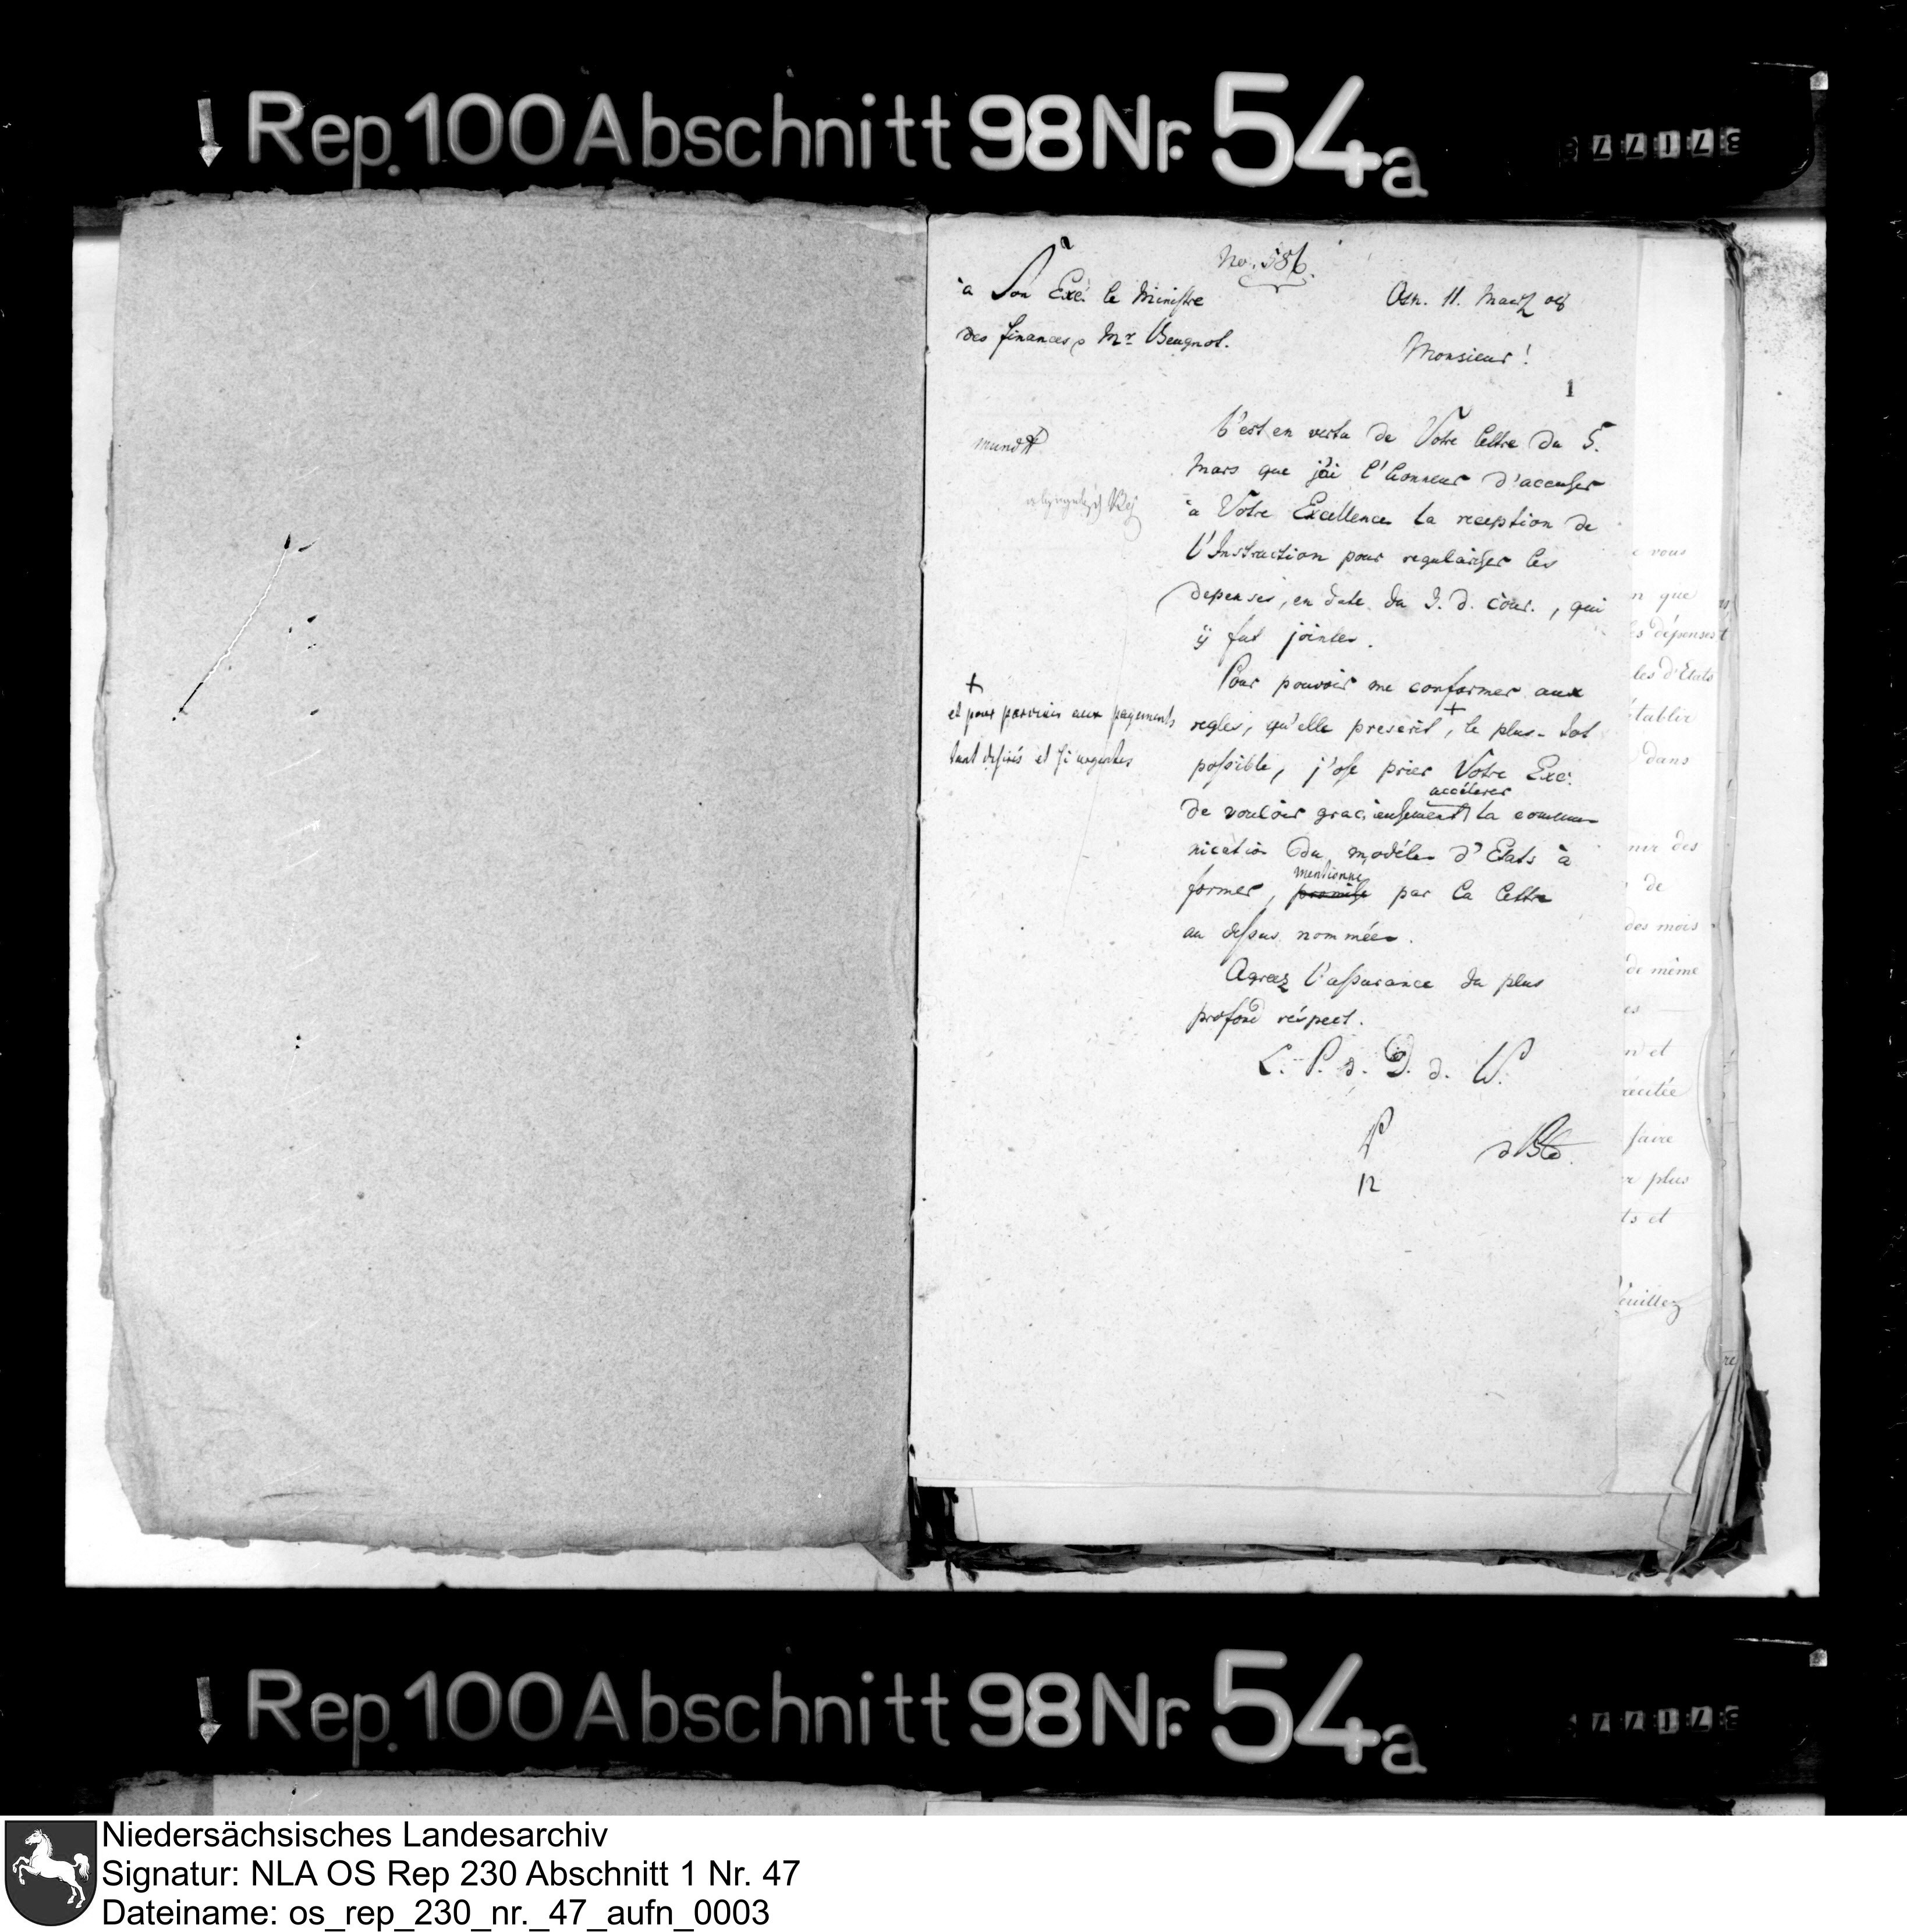 Rep. 100 Abschnitt 98 Nr. 54a
No. 586.
à Son Exc. le Ministre
des finances Mr. Beugnot.
Osn. 11. Maerz 08
Monsieur!
1
mund
C'est en vertu de Votre lettre du 5.
Mars que j'ai l'honneur d'accuser
à Votre Excellence la reception de
l'Instruction pour regulariser les
depenses, en date du 3. d. cour., qui
ÿ fut jointe.
Pour pouvoir me conformer aux
regles, qu'elle prescrit +, le plus-tot
possible, j'ose prier Votre Exc.
accélerer
de vouloir gracieusement la commu-
nication du modéle d'Etats à
mentionné
former, promise par la lettre
au dessus nommée.
+
et pour parvenir aux payements
tant desirés et si urgentes
Agreez l'assurance du plus
profond réspect.
L. P. d. D. d. W.
12
e vous
n que
es dépenses
les d'Etats
établir
dans
nir des
de
des mois
de même
es
n et
récitée
faire
r plus
ts et
Veuillez
Rep. 100 Abschnitt 98 Nr. 54a
Niedersächsisches Landesarchiv
Signatur: NLA OS Rep 230 Abschnitt 1 Nr. 47
Dateiname: os_rep_230_nr._47_aufn_0003